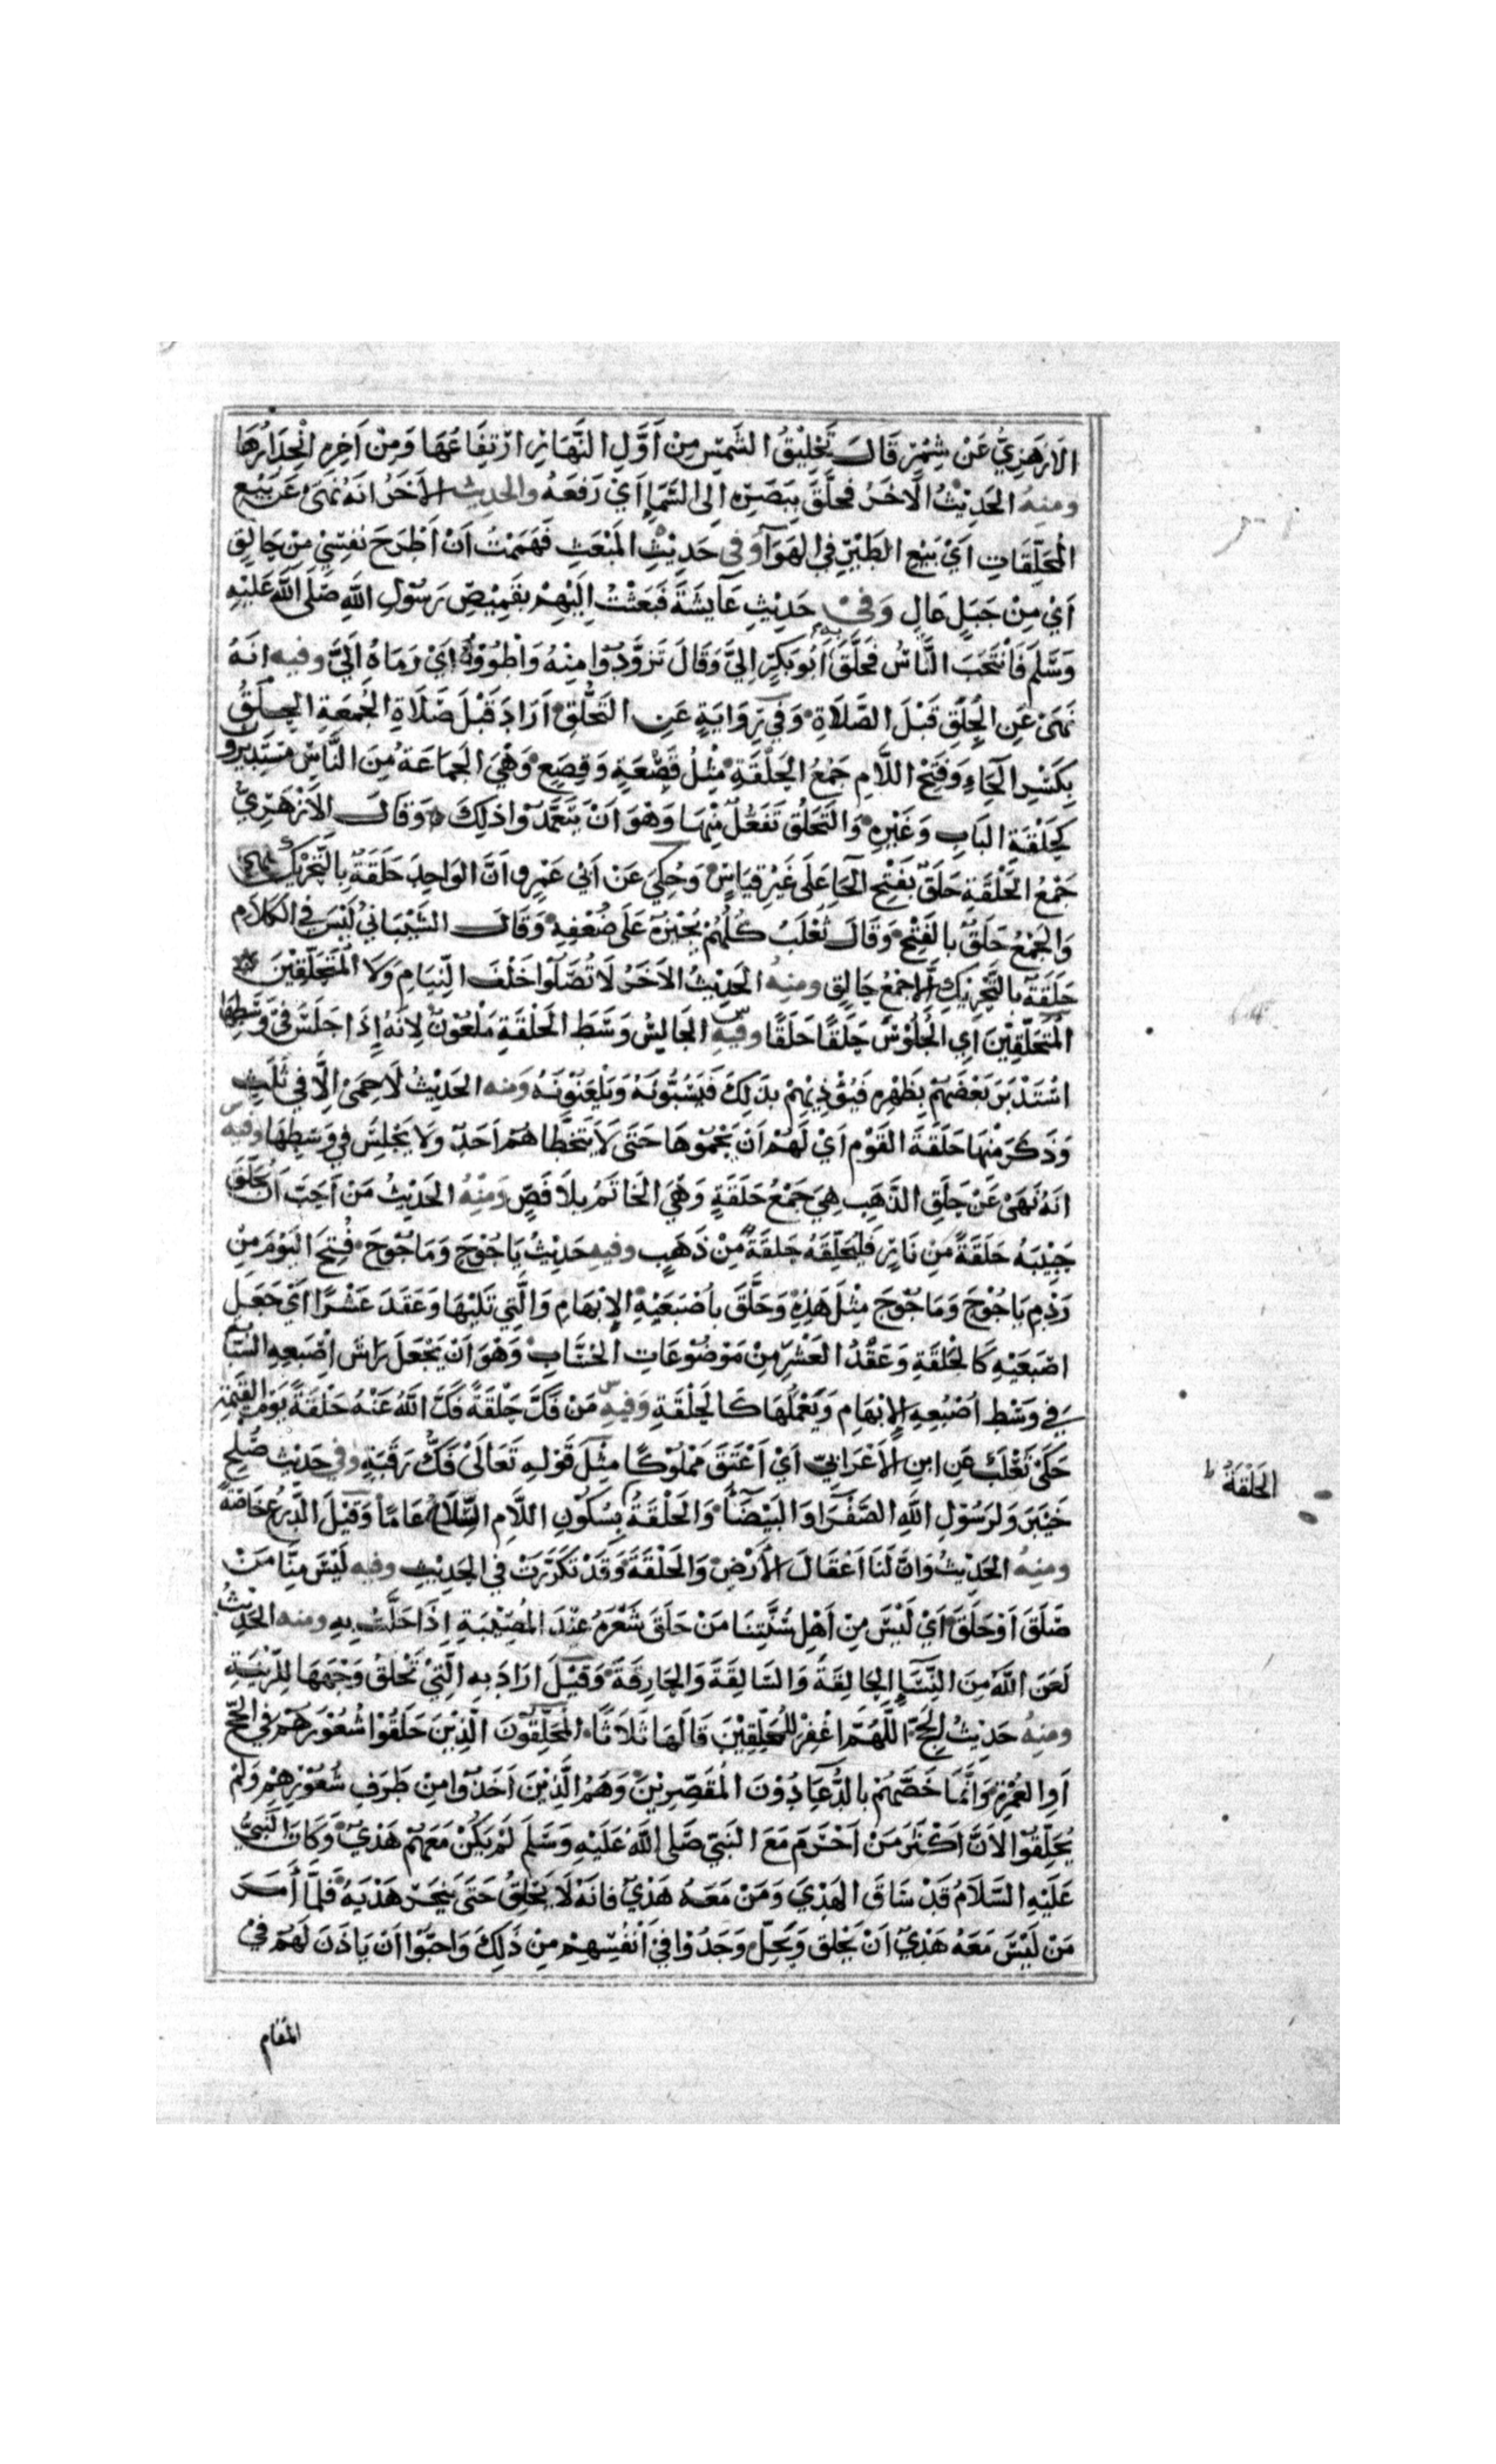 الأَزهَرِيُّ عَنْ شِمْرٍ قَالَ تَحْلِيْقُ الشَمْسِ مِنْ اَوَّلِ النَّهَارِ ارْتِفَاعُهَا وَمِنْ آخِرِهِ انْحِدَارُهَا
ومنهُ الحَدِيْثُ الآخَرُ فحَلَّقَ بِبَصَرِهِ اِلى السَّمَاءِ اَيْ رَفَعَهُ والحديث الآخَرُ انَهُ نَهَى عَنْ بَيْعِ
المُحَلِّقَاتِ اَيْ بَيْعِ الطَيْرِ فِي الهَوَآءِ وَفِى حَدِيْثِ المَبْعَثِ فَهَمَمْتُ اَنْ اَطْرَحَ نَفْسِيْ مِنْ حَالِقٍ
اَيْ مِنْ جَبَلٍ عَالٍ وَفى حَدِيْثِ عَآيشَةَ فَبَعَثْتْ اِلَيْهِمْ بقَمِيْصِ رَسُوْلِ اللَّهِ صَلَى اللَّهُ عَلَيْهِ
وَسَلَمَ فَانْتَحَبَ النَّاسُ فَحَلَّقَ بِهِ اَبُو بَكرٍ اِليَّ وَقَالَ تَزَوَّدُوا مِنْهُ وَاطْوُوْهُ اَيْ رَمَاهُ اِلَيَّ وفيه انَهُ
نَهَى عَنِ الحِلَقِ قَبْلَ الصَّلَاةِ وَفِي رِوَايَةٍ عَنِ التَحَلُّقِ اَرَادَ قَبْلَ صَلَاةِ الجُمعَةِ الحِلَقُ
بِكَسْرِ الحَاءِ وَفَتْحِ اللَّامِ جَمْعُ الحَلْقَةِ مِثْلُ قَصْعَةٍ وَقِصَعٍ وَهْيَ الجَمَاعَةُ مِنَ النَّاسِ مُسْتَدِيْرُو
كَحَلْقَةِ البَابِ وَغَيْرِهِ وَالتَحَلُّقُ تَفَعُّلٌ مِنْهَا وَهْوَ اَنْ يَتَعَمَّدُوْا ذلِكَ وَقَالَ الاَزْهَرِيُّ
جَمْعُ الحَلْقَةِ حَلَقٌ بفَتْحِ الحَاءِ عَلَى غَيْرِ قِيَاسٍ وَحُكِيَ عَنْ اَبي عَمْرٍو اَنَّ الوَاحِدَ حَلَقَةٌ بِالتَحْرِيْكِ
وَالجَمْعُ حَلَقٌ بالفَتْحِ وَقَالَ ثَعْلَبٌ كُلُهُمْ يُجْيِزُهُ عَلَى ضُعْفِهِ وَقَالَ الشَيْبَانيُ لَيْسَ فِي الكَلَامِ
حَلَقَةٌ بالتَّحْرِيْكِ اِلَّا جَمْعُ حَالِقٍ ومنهُ الحَدِيْثُ الآخَرُ لَا تُصَلُّوا خَلْفَ النِّيَامِ وَلَا المُتَحَلِّقِيْنَ
المُتَحَلِّقِيْنَ اَيِ الجُلُوْسَ حِلَقًا حَلَقًا وفيهِ س الجَالِسُ وَسَطَ الحَلْقَةِ مَلْعُوْنٌ لِانَهُ اِذَا جَلَسَ فِيْ وَسَطِهَا
اسْتَدْبَرَ بَعْضَهُمْ بِظَهْرِهِ فَيُؤْذِيْهِمْ بذَلِكَ فَيَسُبُّوْنَهُ وَيَلْعَنُوْنَهُ وَمنه الحَدِيْثُ لَا حِمَى اِلَّا فِي ثَلَثٍ
وَذَكَرَ مِنْهَا حَلَقَةَ القَوْمِ اَيْ لَهُمْ اَنْ يَحْمُوْهَا حَتَى لَا يَتَخَطَّاهُمْ اَحَدٌ ولَا يَجْلِسَ فِي وَسَطِهَا وفيه س
انَهُ نَهَى عَنْ حَلَقِ الذَّهَبِ هِيَ جَمْعُ حَلَقَةٍ وَهْيَ الخَاتَمُ بِلَا فَصٍّ وَمنهُ الحَدِيْثُ مَنْ اَحَبَّ اَنْ يُحَلِّقَ
جَبِيْنَهُ حَلَقَةً مِنْ نَارٍ فَلْيُحَلِّقْهُ حَلقَةً مِنْ ذَهَبٍ وفيهِ حَدِيْثُ يَاجُوْجَ وَمَاجُوْجَ فُتِحَ اليَوْمَ مِنْ
رَدْمِ يَاجُوْجَ وَمَاجُوْجَ مِثْلُ هَذِهِ وَحَلَّقَ باُصْبَعَيْهِ الإِبْهَامِ وَالَّتِي تَلِيْهَا وَعَقَدَ عَشْرًا اَيْ جَعَلَ
اصْبَعَيْهِ كَالحَلْقَةِ وَعَقْدُ العَشْرِ مِنْ مَوْضُوْعَاتِ الحُسَّابِ وَهْوَ اَنْ يَجْعَلَ رَاسَ اِصْبَعِهِ السَّبَّابَةِ
فِي وَسْطِ اُصْبُعِهِ الإِبْهَامِ وَيَعْمَلُهَا كَالحَلْقَةِ وَفِيهِ س مَنْ فَكَّ حَلْقَةً فَكَّ اللَّهُ عَنْهُ حَلْقَةً يَوْمَ القِيٰمَةِ
حَكَى ثَعْلَبٌ عَنِ ابنِ الأَعْرَابيِّ اَيْ اَعْتَقَ مَمْلُوْكًا مِثْلَ قَوْلِهِ تَعَالَى فَكُّ رَقَبَةٍ وفي حَدِيْثِ صُلْحِ
خَيْبَرَ وَلِرَسُوْلِ اللَّهِ الصَّفْرَاءُ وَالبَيْضَآءُ وَالحَلْقَةُ بِسُكُوْنِ اللَّامِ السِّلَاحُ عَامًّا وَقيْلَ الدِّرْعُ خَاصَّةً
الحَلْقَةُ ط
ومنهُ الحَدِيْثُ وَاِنَّ لَنَا اَغْقَالَ الأَرْضِ وَالحَلْقَةَ وَقَدْ تَكَرَّرَتْ فِي الحَدِيْثِ وفيه لَيْسَ مِنَّا مَنْ
صَلَقَ اَوْ حَلَقَ اَيْ لَيْسَ مِنْ اَهْلِ سُنَّتِنَا مَنْ حَلَقَ شَعْرَهُ عِنْدَ المُصِيْبَةِ اِذَا حَلَّتْ بِهِ ومنه الحَدِيْثُ
لَعَنَ اللَّهُ مِنَ النِّسَاءِ الحَالِقَةَ وَالسَالِقَةَ وَالخَارِقَةَ وَقِيْلَ ارَادَ بِهِ الَّتِيْ تَحْلِقُ وَجْهَهَا لِلزِّيْنَةِ
ومنهُ حَدِيْثُ الحَجِّ اللَّهُمَّ اغْفِرْ لِلْمُحَلِّقِيْنَ قَالَهَا ثَلَاثًا المُحَلِّقُوْنَ الَّذِيْنَ حَلَقُوا شُعُوْرَهُمْ في الحَجِّ
اَوِ العُمْرَةِ وَاِنَّمَا خَصَّهُمْ بالدُّعَاءِ دُوْنَ المُقَصِّرِيْنَ وَهُمُ الَّذِيْنَ اَخَذُوْا مِنْ طَرَفِ شُعُوْرِهِمْ وَلَمْ
يُحَلِّقُوْا لاَنَّ اَكْثَرَ مَنْ اَحْرَمَ مَعَ النَبِيّ صَلى اللَّهُ عَلَيْهِ وَسَلَمَ لَمْ يَكُنْ مَعَهُمْ هَدْيٌ وَكَانَ النَّبِيُّ
عَلَيْهِ السَّلَامُ قَدْ سَاقَ الهَدْيَ وَمَنْ مَعَهُ هَدْيٌ فَانَهُ لَا يَحْلِقُ حَتَى يَنْحَرَ هَدْيَهُ فَلَمَّا أَمَرَ
مَنْ لَيْسَ مَعَهُ هَدْيٌ اَنْ يَحْلِقَ وَيَحِلَّ وَجَدُوْا فِيْ اَنْفُسِهِمْ مِنْ ذَلِكَ وَاحَبُّوا اَنْ يَاذَنَ لَهُمْ فِي
المقَام